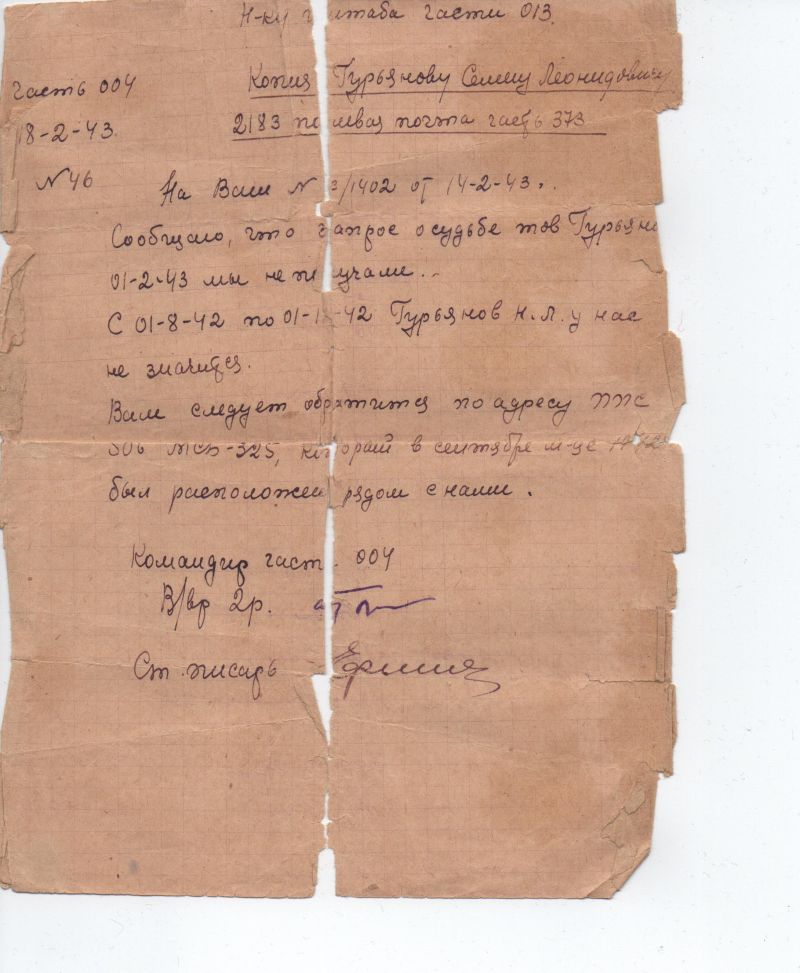 Н-ку штаба части 013.
часть 004
Копия Гурьянову Семену Леонидовичу
18-2-43.
2183 полевая почта часть 373
N 46
На Ваш N /1402 от 14-2-43.
Сообщаю, что запрос о судьбе тов Гурьяно
01-2-43 мы не получали.
С 01-8-42 по 01-1 -42 Гурьянов Н.Л. у нас
не значится.
Вам следует обратится по адресу ППС
506 МСБ-325, который в сентябре м-це
был расположен рядом с нами.
Командир част. 004
В/вр 2р.
Ст. писарь